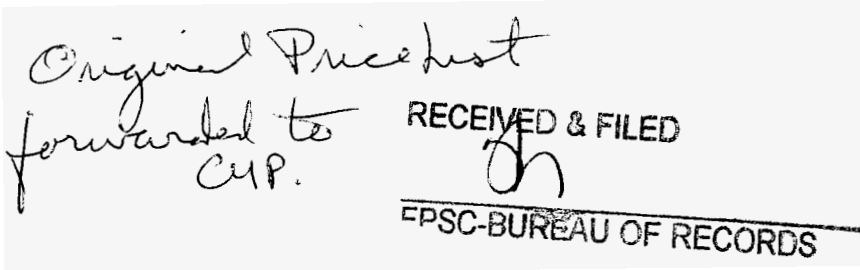 Original Price List
forwarded to
CMP.
RECEIVED & FILED
FPSC-BUREAU OF RECORDS